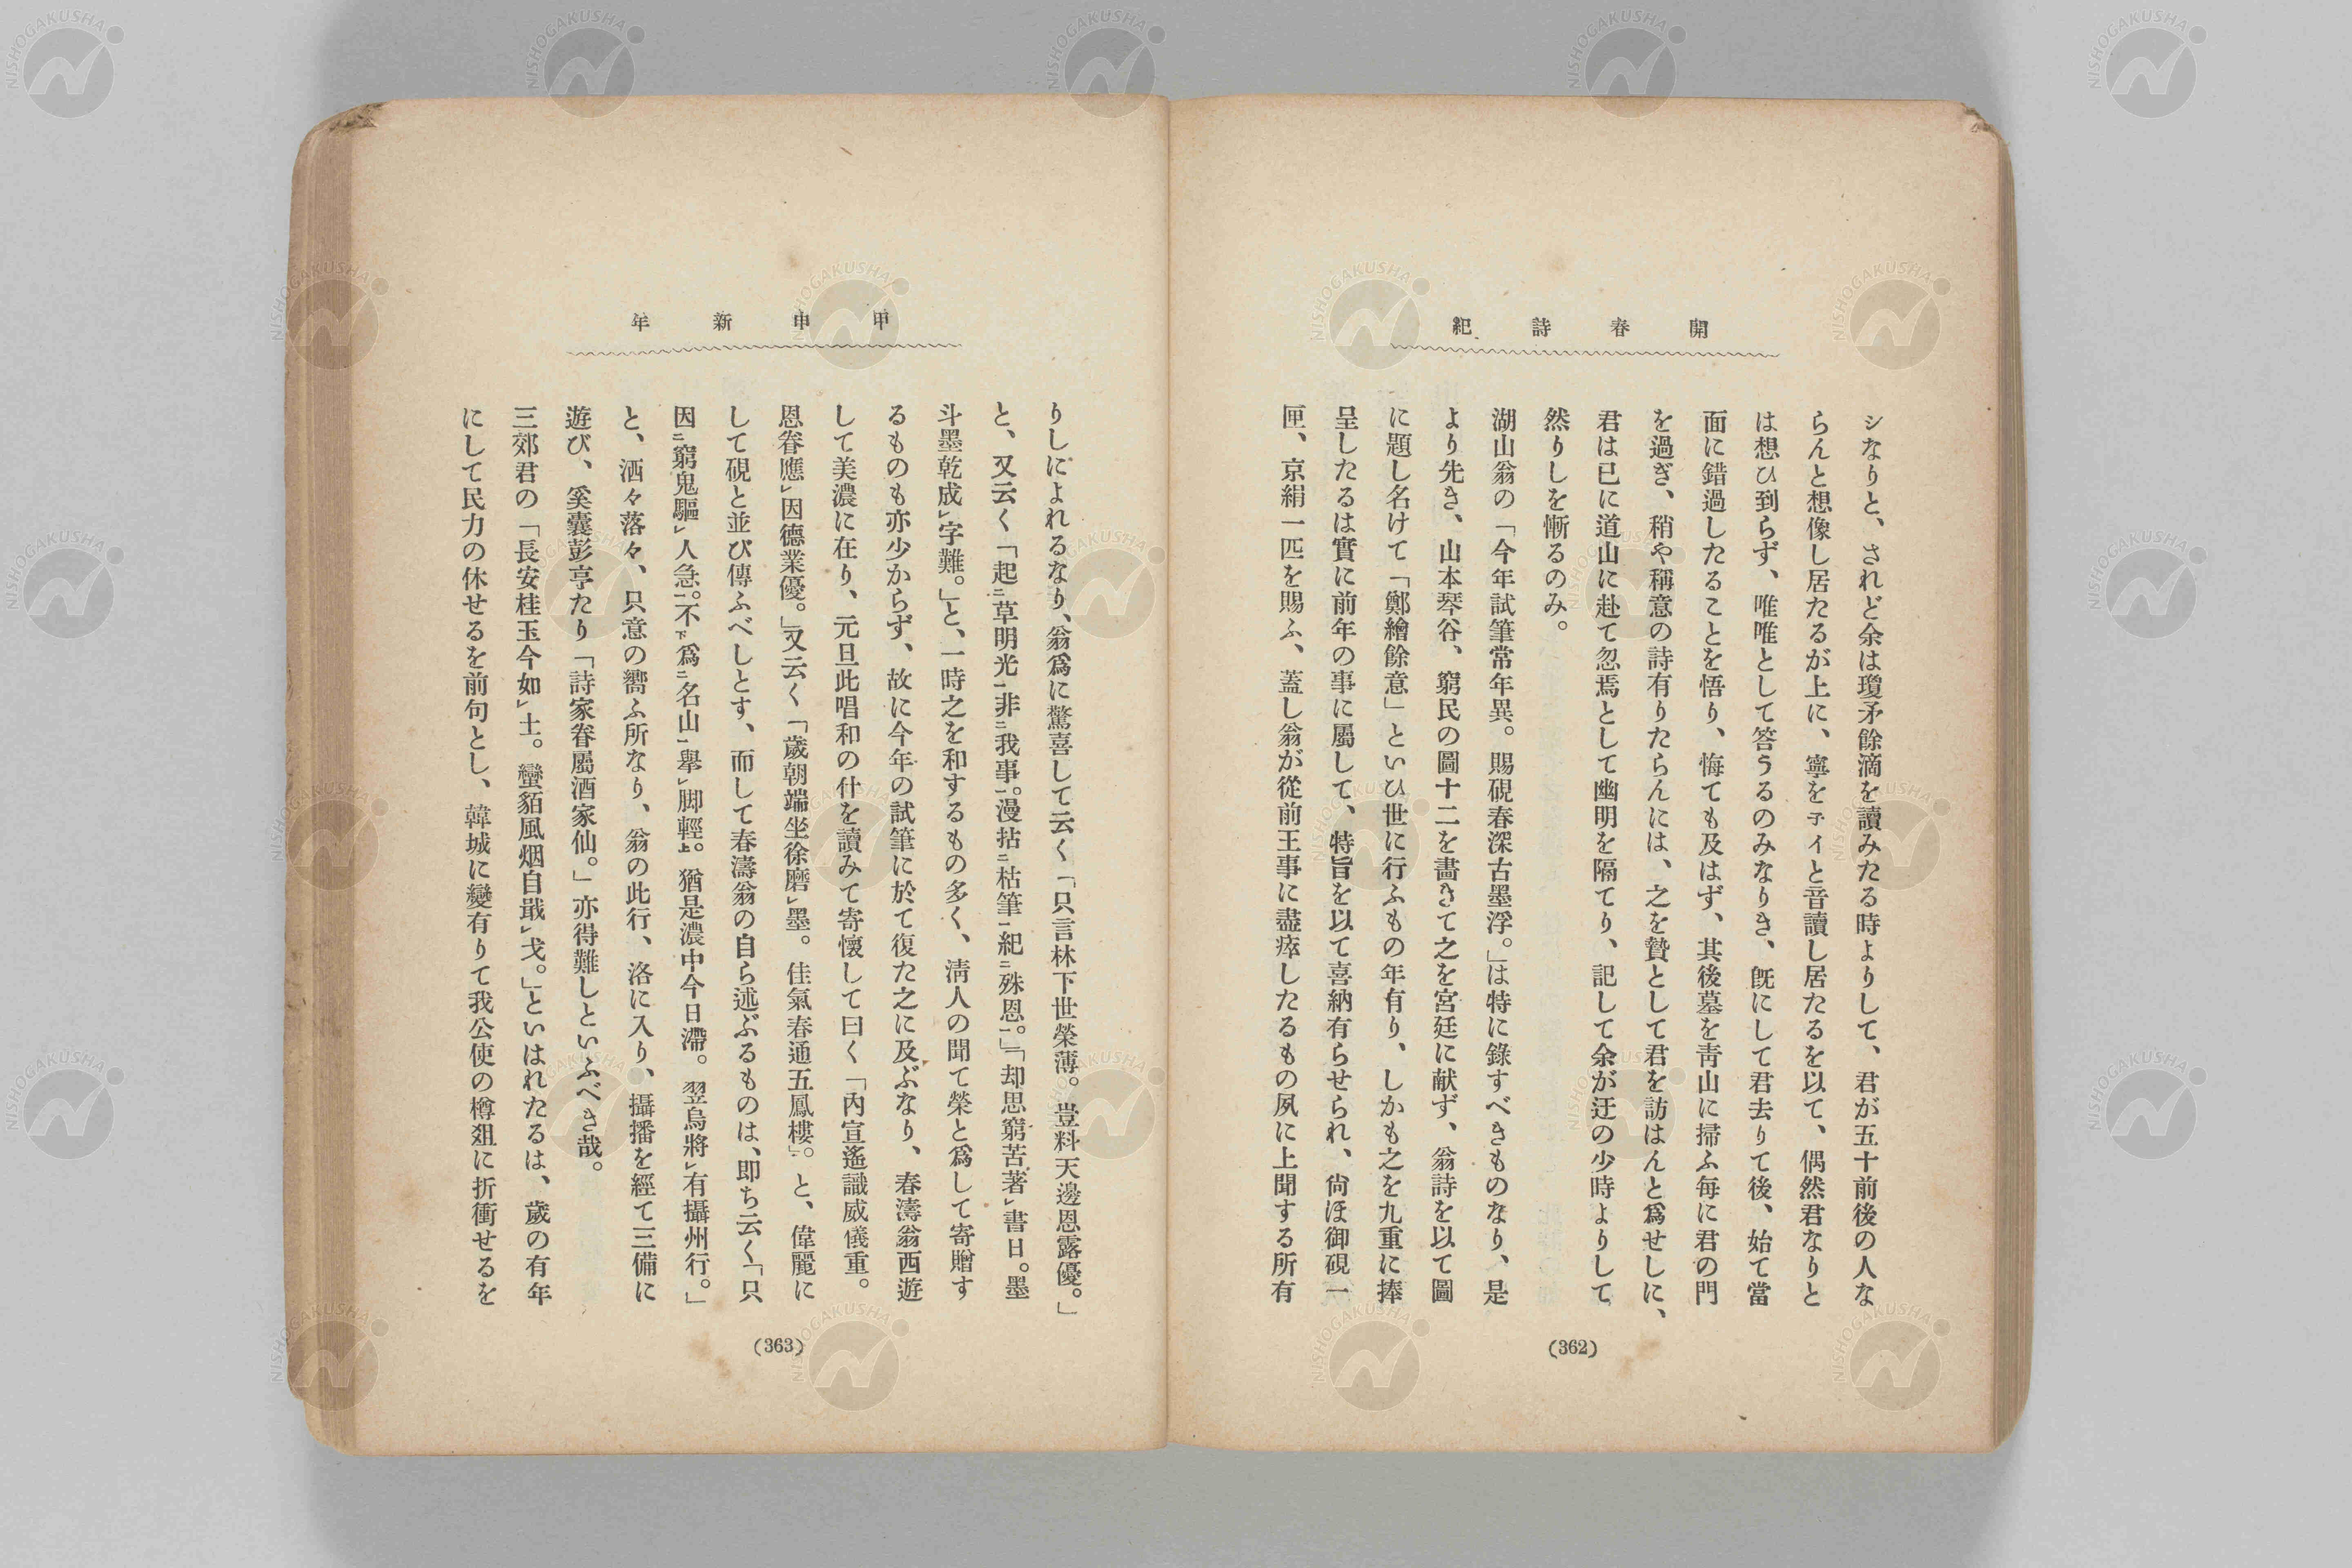 開春詩紀
シなりと、されど余は瓊矛餘滴を讀みたる時よりして、君が五十前後の人な
らんと想像し居たるが上に、寧を子イと音讀し居たるを以て、偶然君なりと
は想ひ到らず、唯唯として答うるのみなりき、旣にして君去りて後、始て當
面に錯過したることを悟り、悔ても及はず、其後墓を靑山に掃ふ毎に君の門
を過ぎ、稍や稱意の詩有りたらんには、之を贄として君を訪はんと爲せしに、
君は已に道山に赴て忽焉として幽明を隔てり、記して余が迂の少時よりして
然りしを慚るのみ。
湖山翁の「今年試筆常年異。賜硯春深古墨浮。」は特に錄すべきものなり、是
より先き、山本琴谷、窮民の圖十二を畵きて之を宮廷に献ず、翁詩を以て圖
に題し名けて「鄭繪餘意」といひ世に行ふもの年有り、しかも之を九重に捧
呈したるは實に前年の事に屬して、特旨を以て喜納有らせられ、尙ほ御硯一
匣、京絹一匹を賜ふ、蓋し翁が從前王事に盡瘁したるもの夙に上聞する所有
(362)
甲申新年
りしによれるなり、翁爲に驚喜して云く「只言林下世榮薄。豈料天邊恩露優。」
と、又云く「起㆓草明光㆒非㆓我事㆒。漫拈㆓枯筆㆒紀㆓殊恩㆒。」「却思窮苦著㆑書日。墨
斗墨乾成㆑字難。」と、一時之を和するもの多く、淸人の聞て榮と爲して寄贈す
るものも亦少からず、故に今年の試筆に於て復た之に及ぶなり、春濤翁西遊
して美濃に在り、元旦此唱和の什を讀みて寄懷して曰く「內宣遙識威儀重。
恩眷應㆑因德業優。」又云く「歲朝端坐徐磨㆑墨。佳氣春通五鳳樓。」と、偉麗に
して硯と並び傳ふべしとす、而して春濤翁の自ら述ぶるものは、卽ち云く「只
因㆓窮鬼驅㆑人急㆒。不㆘爲㆓名山㆒擧㆑脚輕㆖。猶是濃中今日滯。翌烏將㆑有攝州行。」
と、洒々落々、只意の嚮ふ所なり、翁の此行、洛に入り、攝播を經て三備に
遊び、奚囊彭亨たり「詩家眷屬酒家仙。」亦得難しといふべき哉。
三郊君の「長安桂玉今如㆑土。蠻貊風烟自戢㆑戈。」といはれたるは、歲の有年
にして民力の休せるを前句とし、韓城に變有りて我公使の樽爼に折衝せるを
(363)